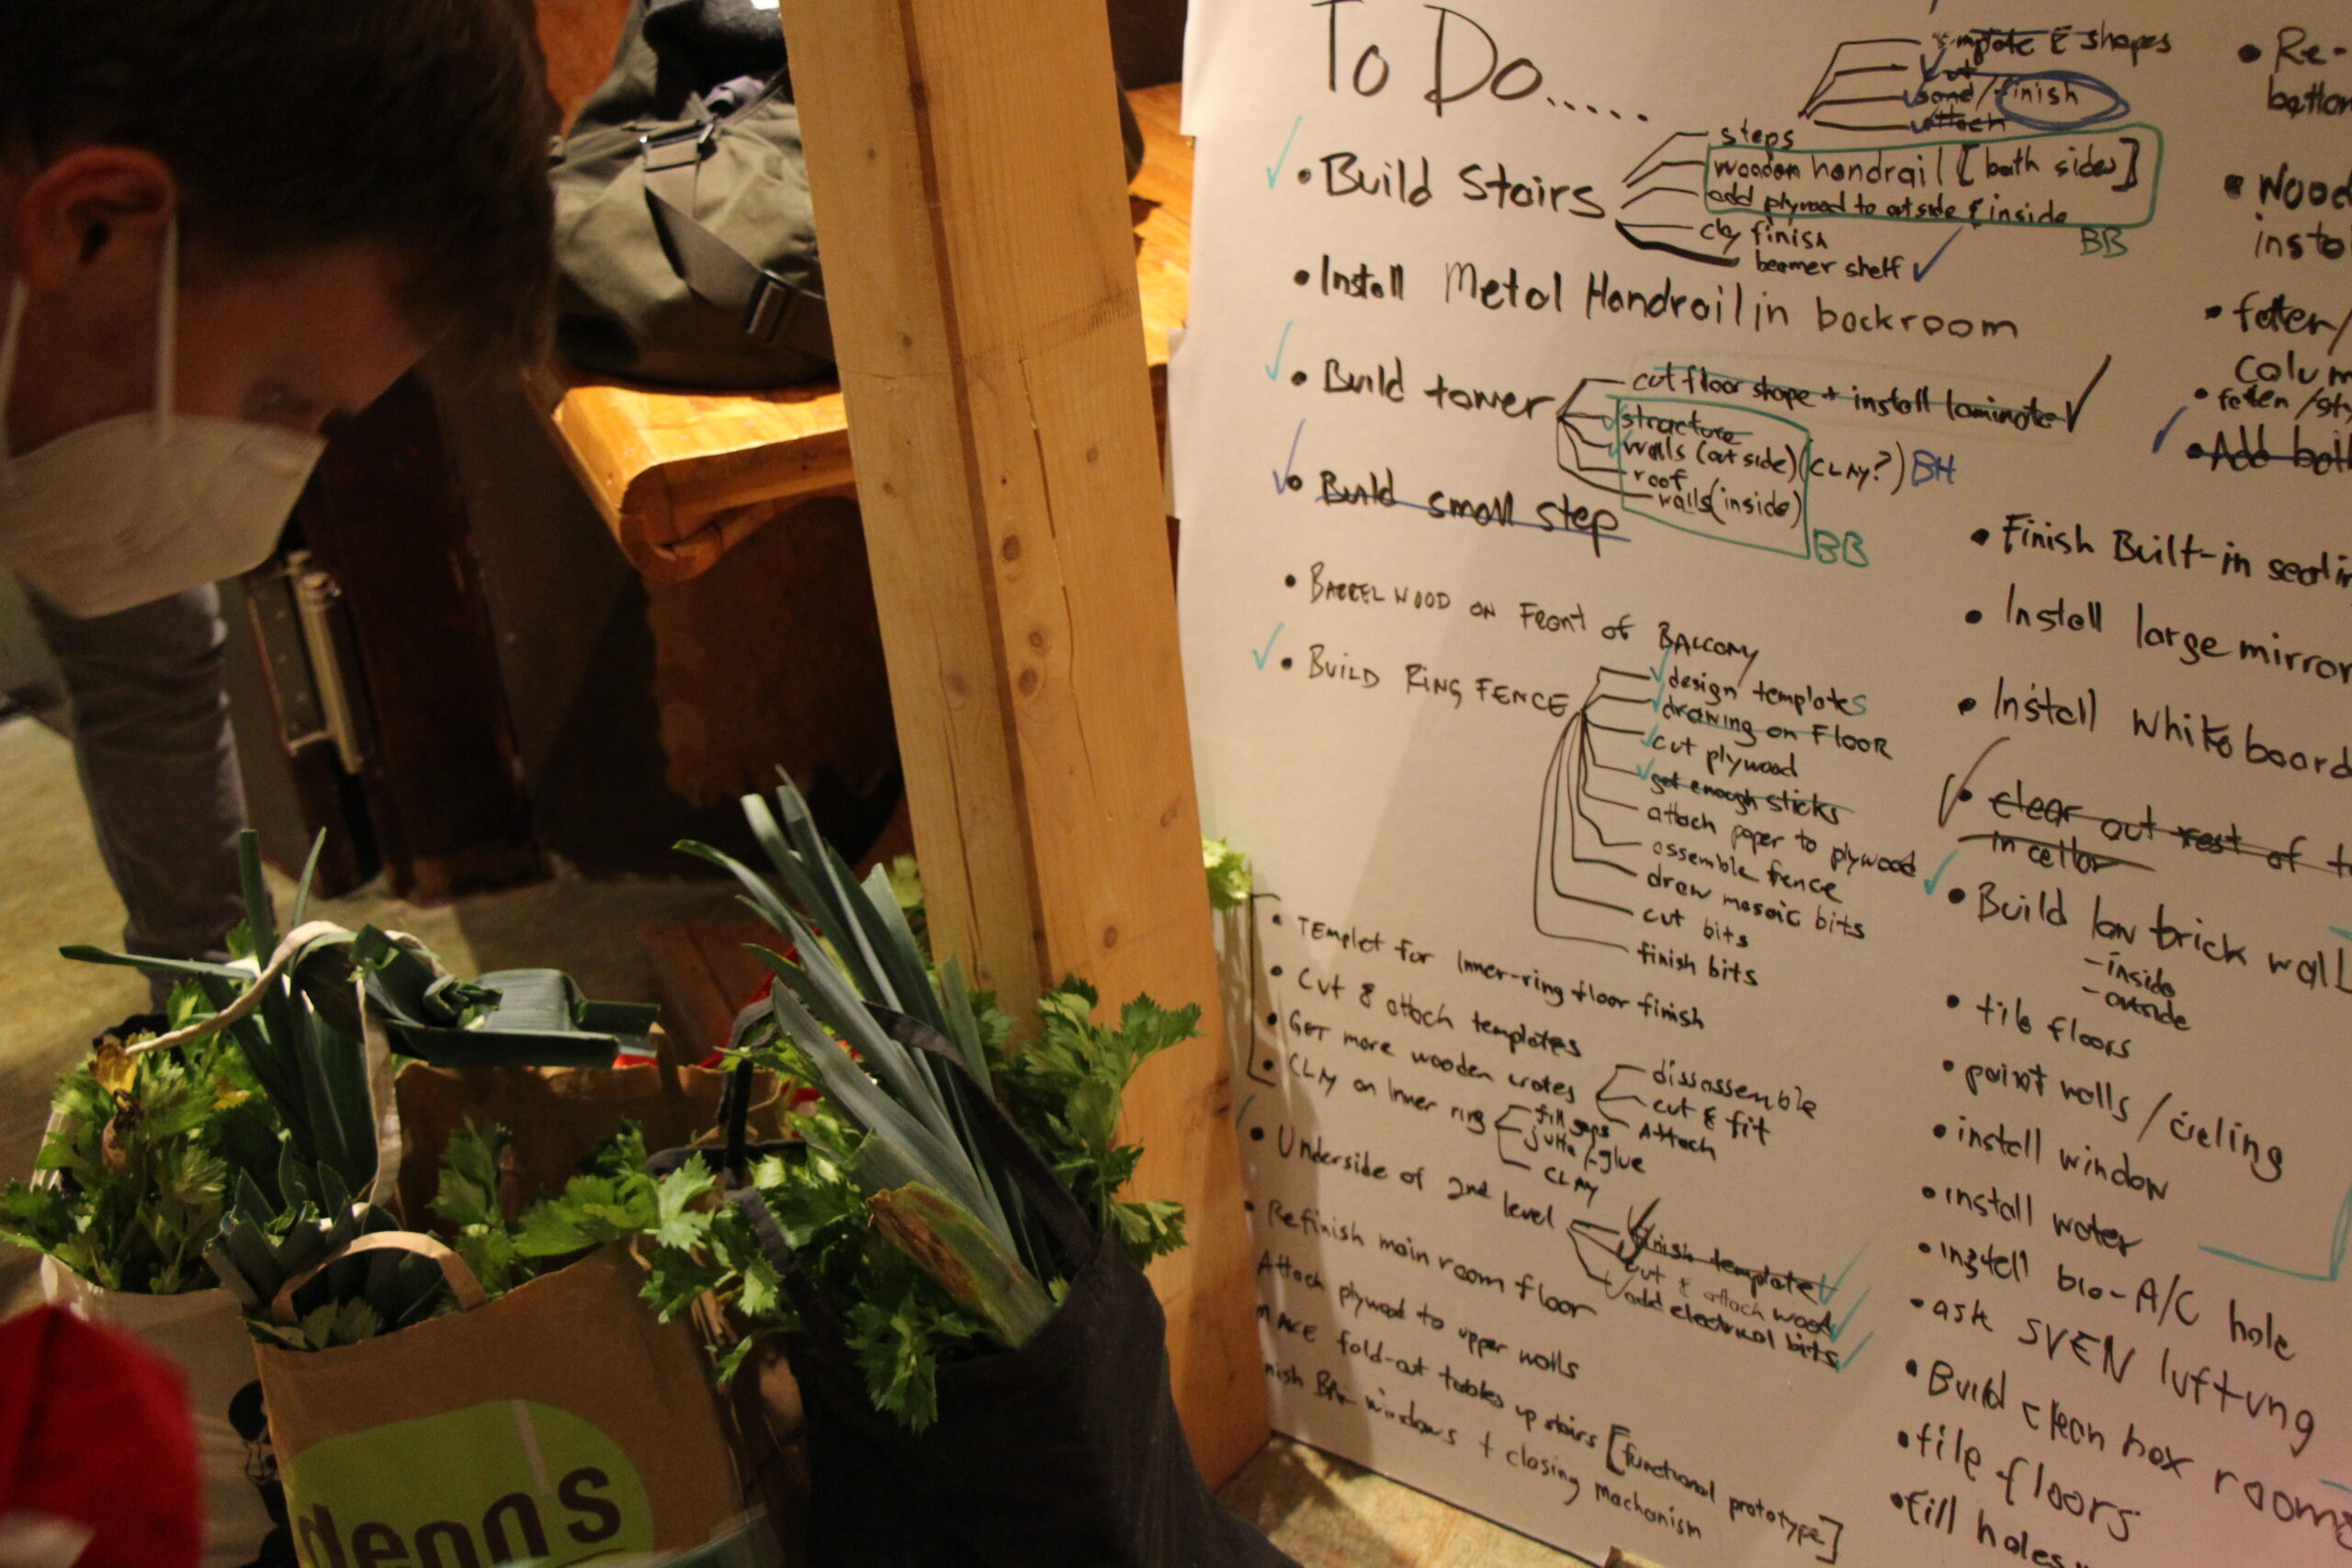 To Do.....
template & shapes
cut
sand/finish
attach
• Build Stairs
steps
wooden handrail [both sides]
add plywood to outside & inside
BB
clay finish
beamer shelf
• Install Metal Handrail in backroom
• Build tower
cut floor shape + install laminate
structure
walls (outside) (CLAY?) BH
roof
walls (inside)
BB
• Build small step
• BARREL WOOD ON FRONT OF BALCONY
• BUILD RING FENCE
design templates
drawing on FLOOR
cut plywood
get enough sticks
attach paper to plywood
assemble fence
draw mosaic bits
cut bits
finish bits
• TEmplet for Inner-ring floor finish
• Cut & attach templates
• GET more wooden crates
dissassemble
cut & fit
Attach
• CLAY on Inner ring
fill gaps
jutte/-glue
CLAY
• Underside of 2nd level
finish template
cut & attach wood
add electrical bits
• Refinish main room floor
Attach plywood to upper walls
MAKE fold-out tables upstairs [functional prototype]
nish BAR windows + closing mechanism
• Re-
• Wood
• Finish Built-in
• Install large mirror
• Install Whiteboard
• clear out rest of
in cellar
• Build low brick wall
- inside
- outside
• tile floors
• paint walls / cieling
• install window
• install water
• install bio-A/C hole
• ask SVEN luftung
• Build clean box room
• tile floors
• fill holes
denn's